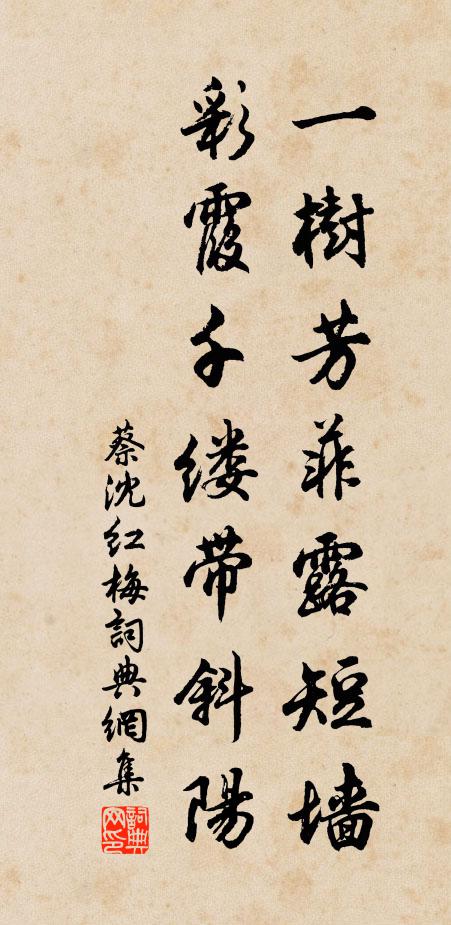 一樹芳菲露短墻
彩霞千缕帶斜陽
蔡沈红梅詞典網集
詞典网印